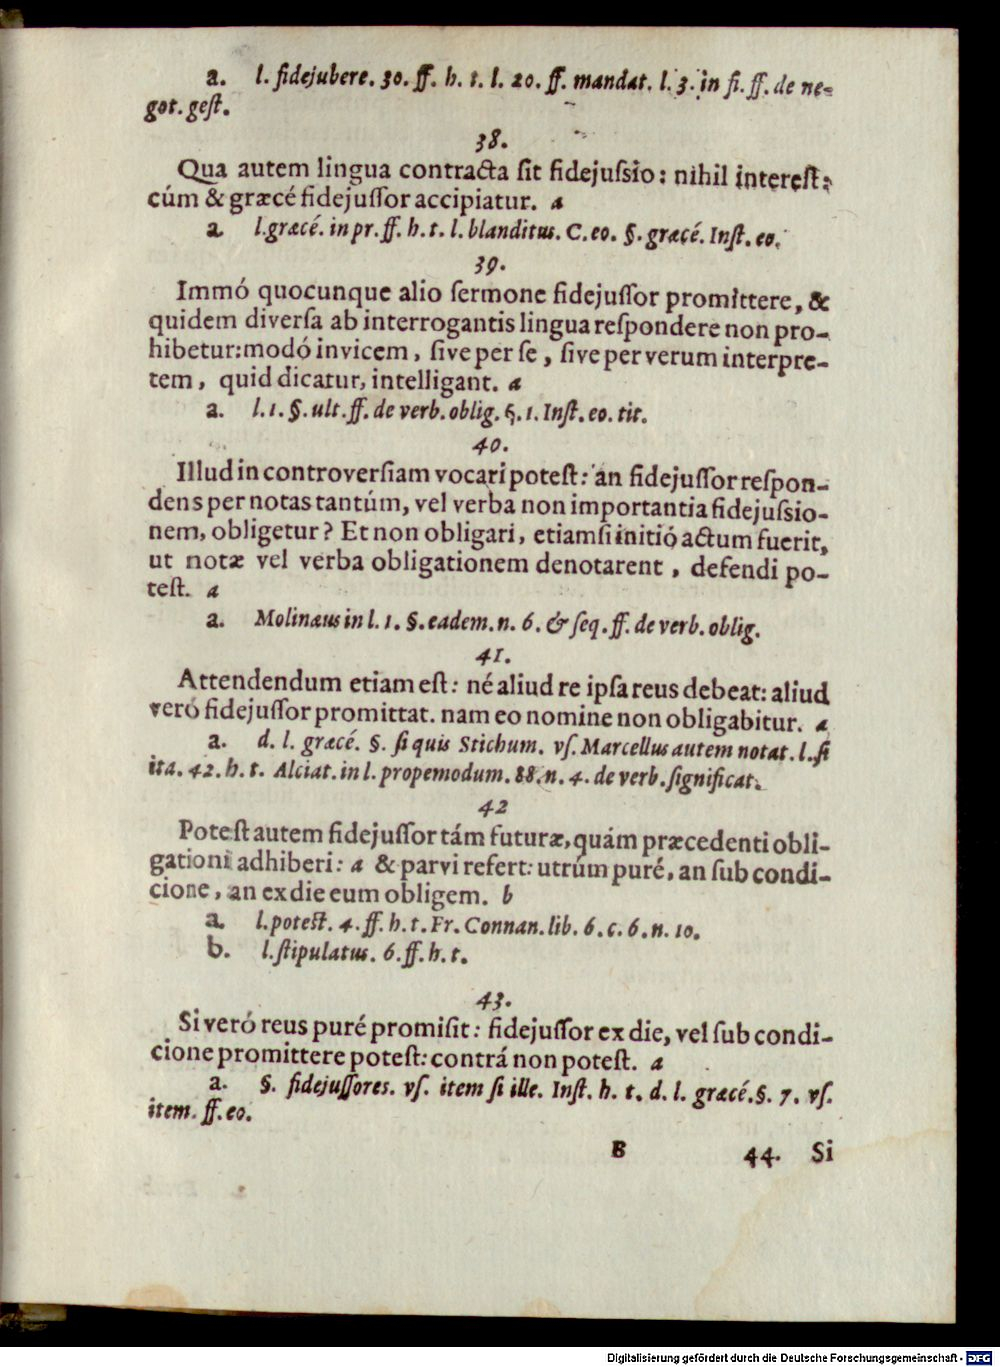 a. l. fidejubere. 30. ff. h. t. l. 20. ff. mandat. l. 3. in fi. ff. de ne-
got. geſt.
38.
Qua autem lingua contracta ſit fidejuſsio: nihil intereſt:
cúm & græcé fidejuſſor accipiatur. a
a. l. græcé. in pr. ff. h. t. l. blanditus. C. eo. §. græcé. Inſt. eo.
39.
Immó quocunque alio ſermone fidejuſſor promittere, &
quidem diverſa ab interrogantis lingua reſpondere non pro-
hibetur: modó invicem, ſive per ſe, ſive per verum interpre-
tem, quid dicatur, intelligant. a
a. l. 1. §. ult. ff. de verb. oblig. §. 1. Inſt. eo. tit.
40.
Illud in controverſiam vocari poteſt: an fidejuſſor reſpon-
dens per notas tantúm, vel verba non importantia fidejuſsio-
nem, obligetur? Et non obligari, etiamſi initió actum fuerit,
ut notæ vel verba obligationem denotarent, defendi po-
teſt. a
a. Molinæus in l. 1. §. eadem. n. 6. & ſeq. ff. de verb. oblig.
41.
Attendendum etiam eſt: né aliud re ipſa reus debeat: aliud
veró fidejuſſor promittat. nam eo nomine non obligabitur. a
a. d. l. græcé. §. ſi quis Stichum. vſ. Marcellus autem notat. l. ſi
ita. 42. h. t. Alciat. in l. propemodum. 88. n. 4. de verb. ſignificat.
42
Poteſt autem fidejuſſor tám futuræ, quám præcedenti obli-
gationi adhiberi: a & parvi refert: utrúm puré, an ſub condi-
cione, an ex die eum obligem. b
a. l. poteſt. 4. ff. h. t. Fr. Connan. lib. 6. c. 6. n. 10.
b. l. ſtipulatus. 6. ff. h. t.
43.
Si veró reus puré promiſit: fidejuſſor ex die, vel ſub condi-
cione promittere poteſt: contrá non poteſt. a
a. §. fidejuſſores. vſ. item ſi ille. Inſt. h. t. d. l. græcé. §. 7. vſ.
item. ff. eo.
B 44. Si
Digitalisierung gefördert durch die Deutsche Forschungsgemeinschaft - DFG